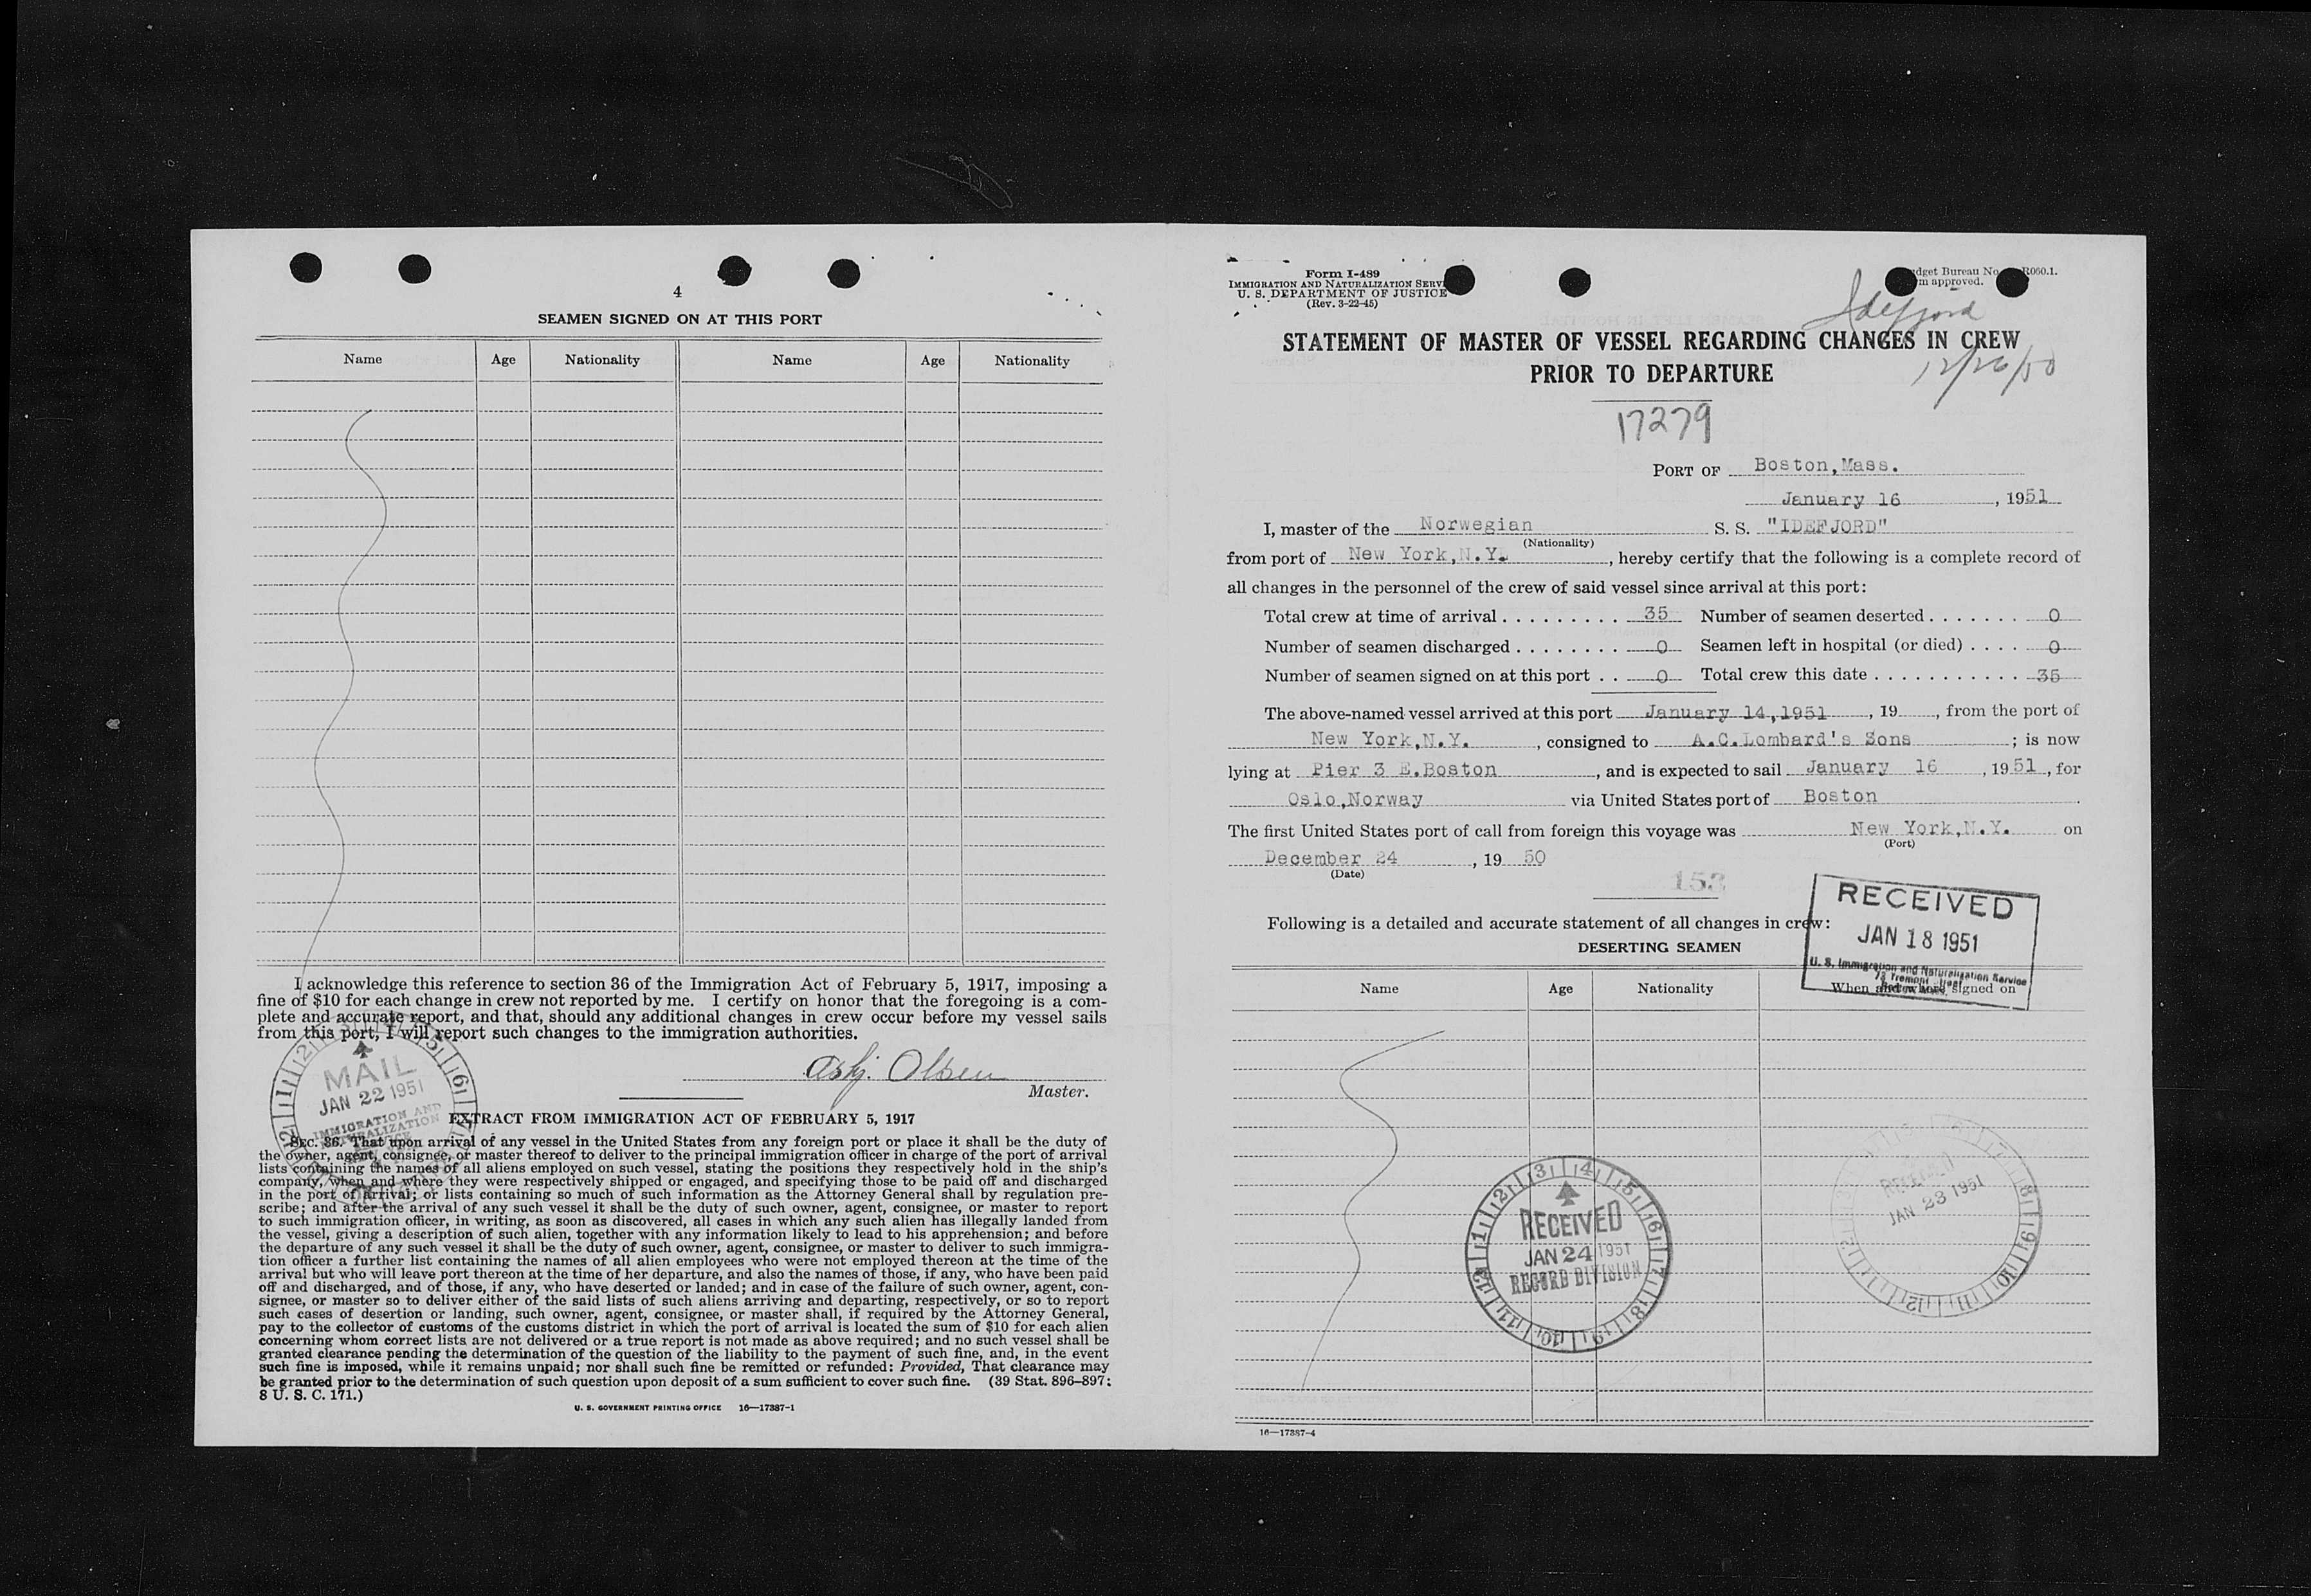 4
SEAMEN SIGNED ON AT THIS PORT
Name Age Nationality Name Age Nationality
I acknowledge this reference to section 36 of the Immigration Act of February 5, 1917, imposing a
fine of $10 for each change in crew not reported by me. I certify on honor that the foregoing is a com-
plete and accurate report, and that, should any additional changes in crew occur before my vessel sails
from this port, I will report such changes to the immigration authorities.
Asbj. Olsen
Master.
MAIL
JAN 22 1951
IMMIGRATION AND
NATURALIZATION
EXTRACT FROM IMMIGRATION ACT OF FEBRUARY 5, 1917
SEC. 36. That upon arrival of any vessel in the United States from any foreign port or place it shall be the duty of
the owner, agent, consignee, or master thereof to deliver to the principal immigration officer in charge of the port of arrival
lists containing the names of all aliens employed on such vessel, stating the positions they respectively hold in the ship's
company, when and where they were respectively shipped or engaged, and specifying those to be paid off and discharged
in the port of arrival; or lists containing so much of such information as the Attorney General shall by regulation pre-
scribe; and after the arrival of any such vessel it shall be the duty of such owner, agent, consignee, or master to report
to such immigration officer, in writing, as soon as discovered, all cases in which any such alien has illegally landed from
the vessel, giving a description of such alien, together with any information likely to lead to his apprehension; and before
the departure of any such vessel it shall be the duty of such owner, agent, consignee, or master to deliver to such immigra-
tion officer a further list containing the names of all alien employees who were not employed thereon at the time of the
arrival but who will leave port thereon at the time of her departure, and also the names of those, if any, who have been paid
off and discharged, and of those, if any, who have deserted or landed; and in case of the failure of such owner, agent, con-
signee, or master so to deliver either of the said lists of such aliens arriving and departing, respectively, or so to report
such cases of desertion or landing, such owner, agent, consignee, or master shall, if required by the Attorney General,
pay to the collector of customs of the customs district in which the port of arrival is located the sum of $10 for each alien
concerning whom correct lists are not delivered or a true report is not made as above required; and no such vessel shall be
granted clearance pending the determination of the question of the liability to the payment of such fine, and, in the event
such fine is imposed, while it remains unpaid; nor shall such fine be remitted or refunded: Provided, That clearance may
be granted prior to the determination of such question upon deposit of a sum sufficient to cover such fine. (39 Stat. 896–897;
8 U. S. C. 171.)
U. S. GOVERNMENT PRINTING OFFICE 16—17387-1
Form I-489
IMMIGRATION AND NATURALIZATION SERV
U. S. DEPARTMENT OF JUSTICE
(Rev. 3-22-45)
dget Bureau No. R060.1.
m approved.
Idefjord
STATEMENT OF MASTER OF VESSEL REGARDING CHANGES IN CREW
PRIOR TO DEPARTURE
12/26/50
17279
PORT OF Boston,Mass.
January 16, 1951
I, master of the Norwegian S. S. "IDEFJORD"
(Nationality)
from port of New York,N.Y., hereby certify that the following is a complete record of
all changes in the personnel of the crew of said vessel since arrival at this port:
Total crew at time of arrival . . . . . . . . . 35 Number of seamen deserted . . . . . . . 0
Number of seamen discharged . . . . . . . . 0 Seamen left in hospital (or died) . . . . 0
Number of seamen signed on at this port . . 0 Total crew this date . . . . . . . . . . . 35
The above-named vessel arrived at this port January 14,1951, 19 , from the port of
New York,N.Y., consigned to A.C.Lombard's Sons; is now
lying at Pier 3 E.Boston, and is expected to sail January 16, 1951, for
Oslo,Norway via United States port of Boston
The first United States port of call from foreign this voyage was New York,N.Y. on
(Port)
December 24, 19 50
(Date)
153
RECEIVED
JAN 18 1951
U. S. Immigration and Naturalization Service
73 Tremont Street
Following is a detailed and accurate statement of all changes in crew:
DESERTING SEAMEN
Name Age Nationality When and where signed on
RECEIVED
JAN 24 1951
RECORD DIVISION
RECEIVED
JAN 23 1951
16—17387-4